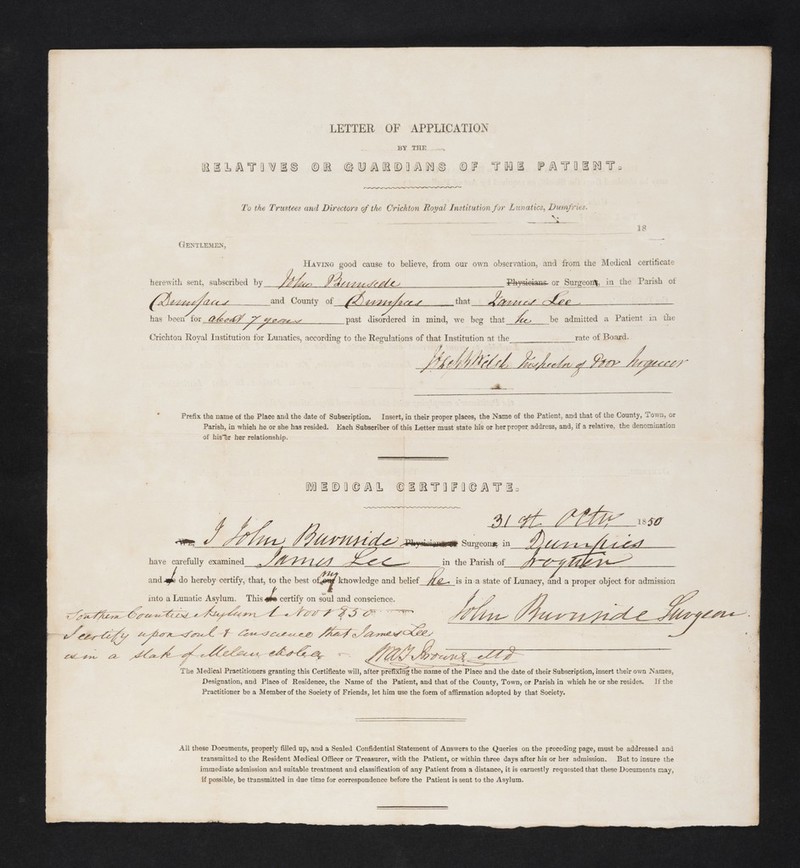 LETTER OF APPLICATION
BY THE
RELATIVES OR GUARDIANS OF THE PATIENT.
To the Trustees and Directors of the Crichton Royal Institution for Lunatics, Dumfries.
18
GENTLEMEN,
HAVING good cause to believe, from our own observation, and from the Medical certificate
herewith sent, subscribed by John Burnside Physicians or Surgeon, in the Parish of
Dumfries and County of Dumfries that James Lee
has been for about 7 years past disordered in mind, we beg that he be admitted a Patient in the
Crichton Royal Institution for Lunatics, according to the Regulations of that Institution at the rate of Board.
Welsh Inspector of Poor
* Prefix the name of the Place and the date of Subscription. Insert, in their proper places, the Name of the Patient, and that of the County, Town, or
Parish, in which he or she has resided. Each Subscriber of this Letter must state his or her proper address, and, if a relative, the denomination
of his or her relationship.
MEDICAL CERTIFICATE.
31st Octr 1850
I John Burnside Surgeon, in Dumfries
have carefully examined James Lee in the Parish of
and I do hereby certify, that, to the best of my knowledge and belief he is in a state of Lunacy, and a proper object for admission
into a Lunatic Asylum. This I certify on soul and conscience.
John Burnside Surgeon.
Southern Counties Asylum 1 Novr 1850
I certify upon soul & conscience that James Lee
is in a state of Melancholia W A F Browne MD
The Medical Practitioners granting this Certificate will, after prefixing the name of the Place and the date of their Subscription, insert their own Names,
Designation, and Place of Residence, the Name of the Patient, and that of the County, Town, or Parish in which he or she resides. If the
Practitioner be a Member of the Society of Friends, let him use the form of affirmation adopted by that Society.
All these Documents, properly filled up, and a Sealed Confidential Statement of Answers to the Queries on the preceding page, must be addressed and
transmitted to the Resident Medical Officer or Treasurer, with the Patient, or within three days after his or her admission. But to insure the
immediate admission and suitable treatment and classification of any Patient from a distance, it is earnestly requested that these Documents may,
if possible, be transmitted in due time for correspondence before the Patient is sent to the Asylum.